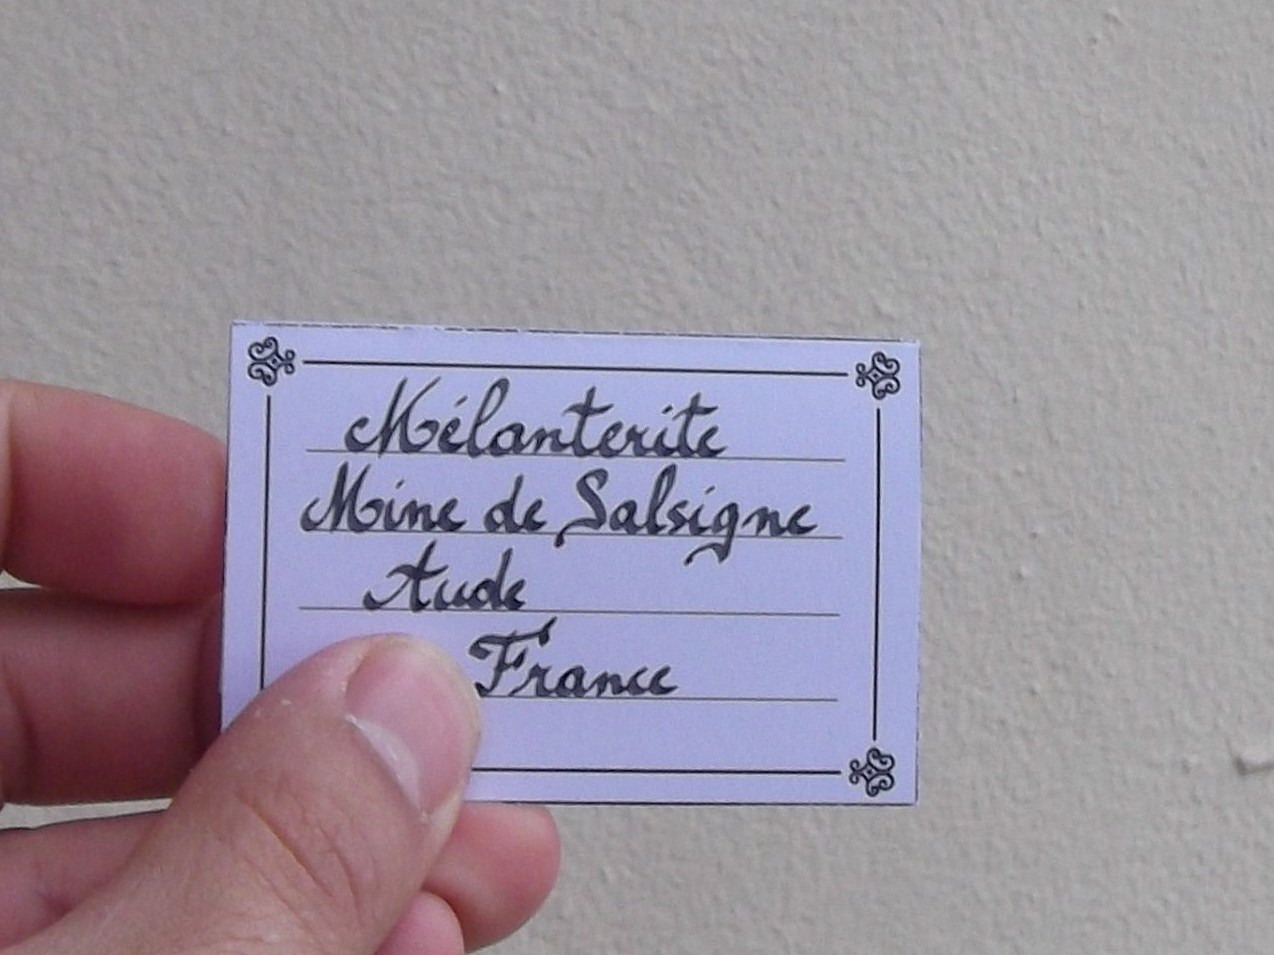 Mélanterite
Mine de Salsigne
Aude
France